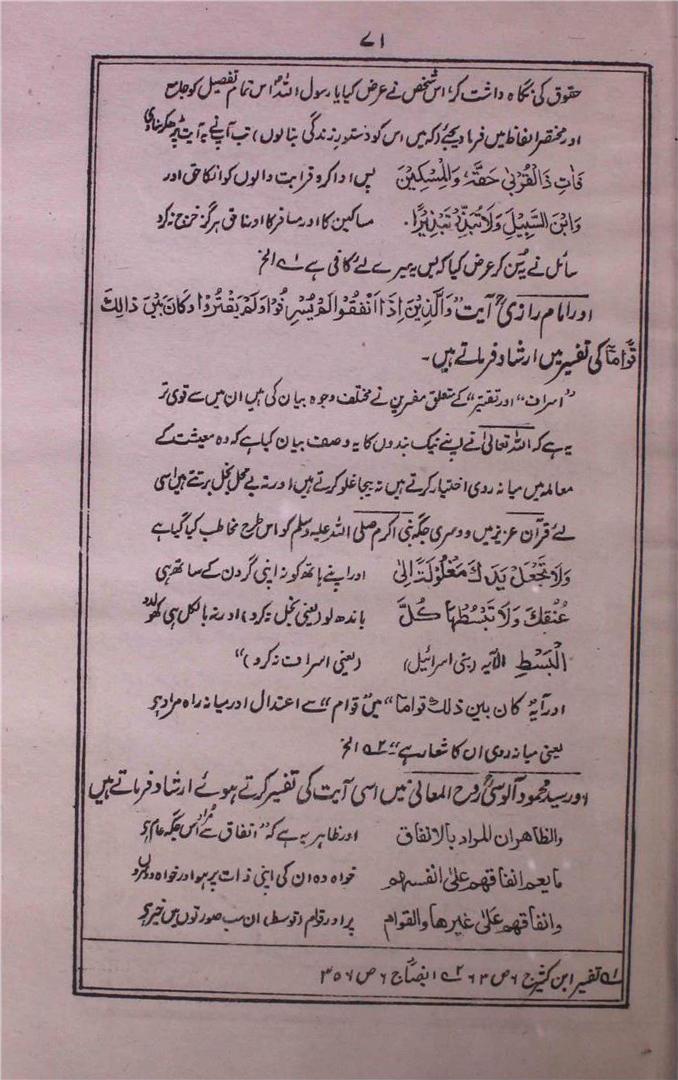 ۷۱
حقوق کی نگاہ داشت کر، اس شخص نے عرض کیا یا رسول اللہ اس تمام تفصیل کو جامع
اور مختصر الفاظ میں فرما دیجئے (کہ میں اس کو دستور زندگی بنا لوں) تب آپ نے یہ آیت پڑھ کر سنا دی
فَاٰتِ ذَا الْقُرْبٰى حَقَّهٗ وَالْمِسْكِيْنَ پس ادا کرو قرابت والوں کو انکا حق اور
وَابْنَ السَّبِيْلَ وَلَا تُبَذِّرْ تَبْذِيْرًا. مساکین کا اور مسافر کا اور ناحق ہرگز خرچ نہ کرو
سائل نے یہ سن کر عرض کیا کہ بس یہ میرے لئے کافی ہے ؎۱ الخ
اور امام رازیؒ آیت "وَالَّذِيْنَ اِذَا اَنْفَقُوْا لَمْ يُسْرِفُوْا وَلَمْ يَقْتُرُوْا وَكَانَ بَيْنَ ذَالِكَ
قَوَّامًا کی تفسیر میں ارشاد فرماتے ہیں۔
"اسراف" اور تقتیر" کے متعلق مفسرین نے مختلف وجوہ بیان کی ہیں ان میں سے قوی تر
یہ ہے کہ اللہ تعالیٰ نے اپنے نیک بندوں کا یہ وصف بیان کیا ہے کہ وہ معیشت کے
معاملہ میں میانہ روی اختیار کرتے ہیں نہ بیجا غلو کرتے ہیں اور نہ بے محل بخل برتتے ہیں اسی
لئے قرآن عزیز میں دوسری جگہ نبی اکرم صلی اللہ علیہ وسلم کو اس طرح مخاطب کیا گیا ہے
وَلَا تَجْعَلْ يَدَكَ مَغْلُوْلَةً اِلٰى اور اپنے ہاتھ کو نہ اپنی گردن کے ساتھ ہی
عُنُقِكَ وَلَا تَبْسُطْهَا كُلَّ باندھ لو (یعنی بخل نہ کرو) اور نہ بالکل ہی کھولدو
الْبَسْطِ الآیہ (بنی اسرائیل) (یعنی اسراف نہ کرو)"
اور آیۃ كان بين ذلك قواما" میں "قوام" سے اعتدال اور میانہ راہ مراد ہے
یعنی میانہ روی ان کا شعار ہے" ؎۲ الخ
اور سید محمود آلوسیؒ روح المعانی میں اسی آیت کی تفسیر کرتے ہوئے ارشاد فرماتے ہیں
والظاهر ان المراد بالانفاق اور ظاہر یہ ہے کہ "انفاق سے مراد اس جگہ عام ہے
ما يعم انفاقهم على انفسهم خواہ وہ ان کی اپنی ذات پر ہو اور خواہ دوسروں
وانفاقهم على غيرها والقوام پر اور قوام (توسط) ان سب صورتوں میں خیر ہے
؎۱ تفسیر ابن کثیر ج ۶ ص ۶۳ ؎۲ ایضاً ج ۶ ص ۳۵۶